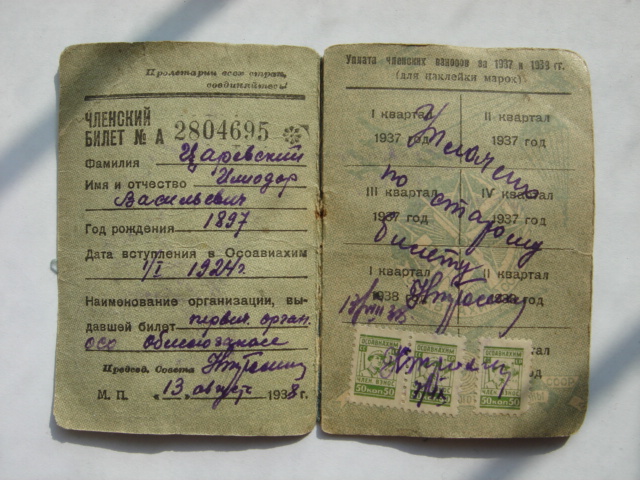 Пролетарии всех стран,
соединяйтесь!
ЧЛЕНСКИЙ
БИЛЕТ № А 2804695
Фамилия Царевский
Имя и отчество
Васильевич
Год рождения 1897
Дата вступления в Осоавиахим
1/I 1924г.
Наименование организации, вы-
давшей билет первич. орган.
осо
Председ. Совета
М. П. „ 13 " август 1938 г.
Уплата членских взносов за 1937 и 1938 гг.
(для наклейки марок)
I квартал
1937 год
II квартал
1937 год
III квартал
1937 год
IV квартал
1937 год
I квартал
1938
II квартал
1938 год
квартал
год
Уплочено
по старому
билету
13/VIII 38
ОСОАВИАХИМ
ЧЛЕН. ВЗНОС
50 КОП 50
ОСОАВИАХИМ
ЧЛЕН. ВЗНОС
50 КОП 50
ОСОАВИАХИМ
ЧЛЕН. ВЗНОС
50 КОП 50
СССР